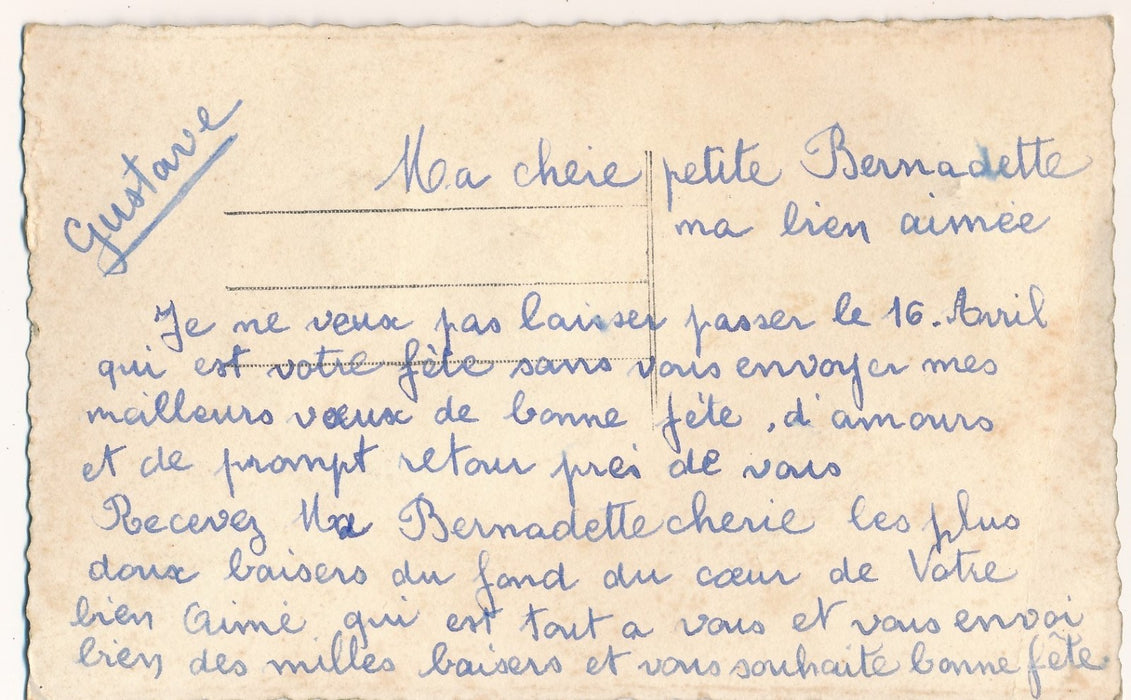 Gustave
Ma cheie petite Bernadette
ma bien aimée
Je ne veux pas laisser passer le 16. Avril
qui est votre fête sans vous envoyer mes
meilleurs vœux de bonne fête, d'amours
et de prompt retour près de vous
Recevez Ma Bernadette cherie les plus
doux baisers du fond du cœur de Votre
bien Aimé qui est tout a vous et vous envoi
bien des milles baisers et vous souhaite bonne fête.